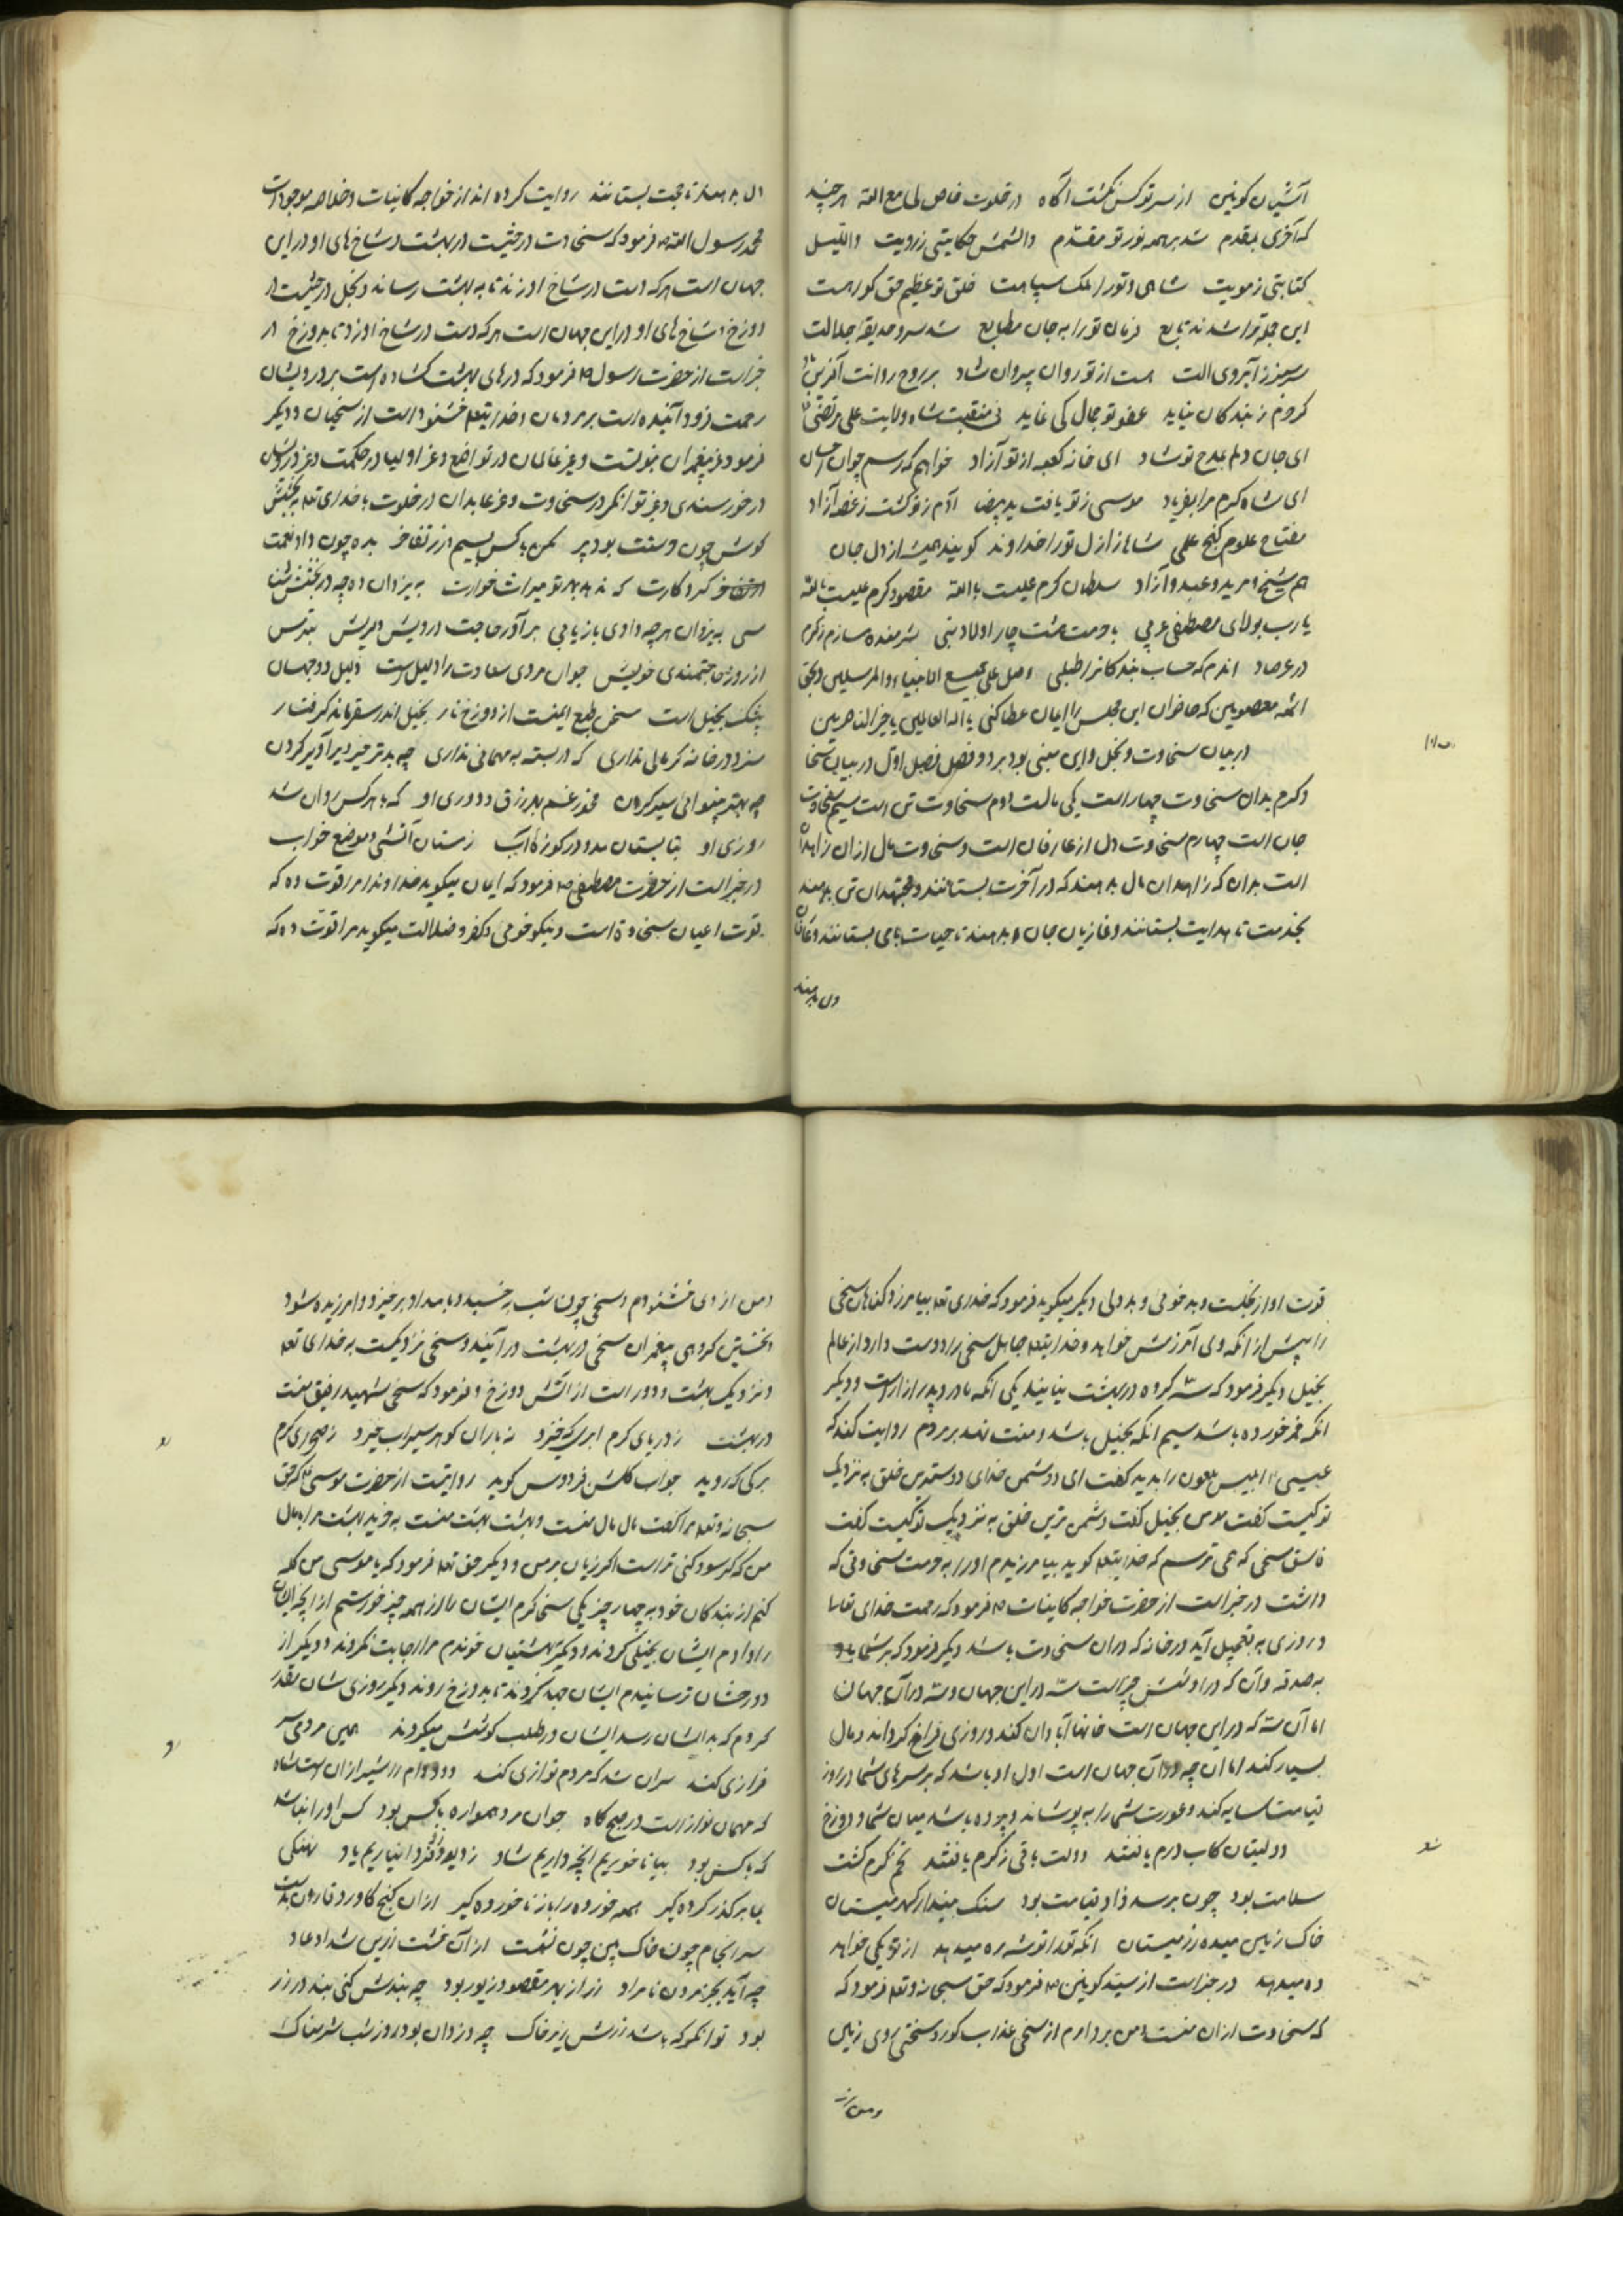 آشیان کونین از سر تو کس نگشت آگاه در خلوت خاص لی مع الله هر چند
که آخری بمقدم شد بر همه نور تو مقدم والشمس حکایتی ز رویت واللیل
کتابتی ز مویت شاهی و تو را ملک سپاهت خلق تو عظیم حق گواهت
این جمله ترا شدند تابع فرمان تو را به جان مطابع شد سرو حدیقه جلالت
سرسبز ز آبروی الت هست از تو روان پیروان شاد بر روح روانت آفرین باد
کرجرم ز بندگان نیاید عفو تو جمال کی نماید فی منقبت شاه ولایت علی مرتضی
ای جان دلم بمدح تو شاد ای خانه کعبه از تو آزاد خواهم که رسم چوان
ای شاه کرم مرا بفریاد موسی ز تو یافت ید بیضا آدم ز تو گشت ز غصه آزاد
مفتاح علوم گنج علمی شاها ز ازل تو را خداوند کویند همیشه از دل جان
هم شیخ و مرید و عبد و آزاد سلطان کرم علیست بالله مقصود کرم علیست بالله
یا رب بولای مصطفی عربی با حرمت هشت چار اولاد نبی شرمنده مسازم ز کرم
در عرصات اندم که حساب بندگانرا طلبی وصل علی جمیع الانبیاء والمرسلین و بحق
ائمه معصومین که حاضران این مجلس را ایمان عطا کنی یا اله العالمین یا خیر الناصرین
در بیان سخاوت و بخل و این مبنی بود بر دو فصل فصل اول در بیان سخا
و کرم بدان سخاوت چهار است یکی مالست دوم سخاوت تن است سیم سخاوت
جان است چهارم سخاوت دل از عارفان است و سخاوت مال از ان زاهدان
است بدان که زاهدان مال بدهند که در آخرت بستانند و مجتهدان تن بدهند
بخدمت تا هدایت بستانند و غازیان جان بدهند تا حیات باقی بستانند و عارفان
دل بدهند
دل بدهند تا محبت بستانند روایت کرده اند از خواجه کاینات و خلاصه موجودات
محمد رسول الله ص فرمود که سخاوت درختیست در بهشت و شاخ های او در این
جهان است هر که دست در شاخ او زند تا به بهشت رساند و بخل درختیست در
دوزخ و شاخ های او در این جهان است هر که دست در شاخ او زد تا بدوزخ در
خبر است از حضرت رسول ص فرمود که درهای بهشت گشاده است بر درویشان
رحمت فرود آینده است بر مردمان و خدایتعالی خشنود است از سخیان و دیگر
فرمود عز پیغمبران بنوتست و عز عالمان در تواضع و عز اولیا در حکمت و عز درویشان
در خورسندی و عز توانگر در سخاوت و عز عابدان در خلوت با خدای تعالی
کوش چون وسعت بود پر مکن با کس بسیم و زر تفاخر بده چون داد نعمت
کردگارت که ندهد بهر تو میراث خوارت به یزدان ده چه در
می به یزدان هر چه دادی باز یابی برآور حاجت درویش دلریش بترس
از روز حاجتمندی خویش جوان مردی سعادت را دلیل است ذلیل دو جهان
بیشک بخیل است سخی طبع ایمنست از دوزخ نار بخیل اندر سقر ماند گرفتار
سزد در خانه گر مالی نداری که در بسته به مهمانی نداری چه بدتر چیز دیر آدیر کردن
چه بهتر بینوائی سیر کردن مخور غم بهر رزق و دوری او که با هر کس روان شد
روزی او بتابستان بدو در کوزه آب زمستان آتشی و موضع خواب
در خبر است از حضرت مصطفی ص فرمود که ایمان میگوید خداوندا مرا قوت ده که
قوت ایمان سخاوت است و نیکو خوئی و کفر و ضلالت میگوید مرا قوت ده که
قوت او از بخلست و بد خوئی و بد دلی دیگر میگوید فرمود که خدای تعالی بیامرزد گناهان سخی
را پیش از انکه وی آمرزش خواهد و خدایتعالی جاهل سخی را دوست دارد از عالم
بخیل دیگر فرمود که سه گروه در بهشت نیایند یکی انکه مادر و پدر ازار است و دیگر
انکه خمر خورده باشد سیم انکه بخیل باشد و منت نهد بر مردم روایت کنند که
عیسی ع ابلیس ملعون را بدید گفت ای دوشمن خدای دوستترین خلق به نزدیک
تو کیست گفت مومن بخیل گفت دشمن ترین خلق به نزدیک تو کیست گفت
فاسق سخی که همی ترسم که خدایتعالی گوید بیامرزیدم اورا به حرمت سخاوتی که
داشت در خبر است از حضرت خواجه کاینات ص فرمود که رحمت خدای تعالی
و روزی به تعجیل آید در خانه که دران سخاوت باشد دیگر فرمود که بر شما باد
به صدقه وآن که در او شش چیز است سه در این جهان و سه در آن جهان
اما آن سه که در این جهان است خانها آبادان کند و روزی فراخ گرداند و مال
بسیار کند اما ان چه در آن جهان است اول او باشد که بر سرهای شما در روز
قیامت سایه کند و عورت شما را به پوشاند و پرده باشد میان شما و دوزخ
دولتیان کاب درم یافتند دولت باقی ز کرم یافتند تخم کرم کشت
سلامت بود چون برسد زاد قیامت بود سنگ بینداز گهر میستان
خاک زمین میده زر میستان انکه تو را توشه ره میدهد از تو یکی خواهد
ده میدهد در خبر است از سید کونین ص فرمود که حق سبحانه و تعالی فرمود که
که سخاوت از ان منست و من بردارم از سخی عذاب گور و سختی روی زمین
و من از
و من از وی خشنودم و سخی چون شب به خسبد و بامداد برخیزد و آمرزیده شود
و نخستین گروهی پیغمبران سخی در بهشت در آیند و سخی نزدیکست به خدای تعالی
و نزدیک بهشت و دور است از اتش دوزخ و فرمود که سخی شهید رفیق منست
در بهشت ز دریای کرم ابری که خیزد ز باران گوهر سیراب خیزد ز صحرای کرم
برگی که روید جواب گلشن فردوس گوید روایتست از حضرت موسی ع که حق
سبحانه و تعالی مرا گفت مال مال منست و بهشت بهشت منست به خرید بهشت مرا بمال
من که گر سود کنی تراست اگر زیان بر من و دیگر حق تعالی فرمود که یا موسی من گله
کنم از بندگان خود به چهار چیز یکی سخی کرم ایشان را از همه چیز
را دادم ایشان بخیلی کردند و دیگر بهشتیان خوندم مرا اجابت نکردند و دیگر از
دوزخشان ترسانیدم ایشان جهد کردند تا بدوزخ روند دیگر روزی شان مقدر
کردم که بدایشان رسد ایشان در طلب کوشش میکردند همی مردمی سر
فرازی کند سران شد که مردم نوازی کند دد و دام را شیر از ان است شاه
که مهمان نواز است در صبح گاه جوان مرد همواره با کس بود کس او را نباشد
که با کس بود بیا تا خوریم انچه داریم شاد نیاریم یاد نهنگی
بما بر گذر کرده گیر همه خورده را باز ناخورده گیر از ان گنج کاورد قارون بدست
سرانجام چون خاک بین چون نشست از ان خشت زرین شداد عاد
چه آید بجز مردن نامراد زر از بهر مقصود زیور بود چه بندش کنی بند در زر
بود توانگر که باشد زرش زیر خاک چه دزدان بود روز شب شرمناک